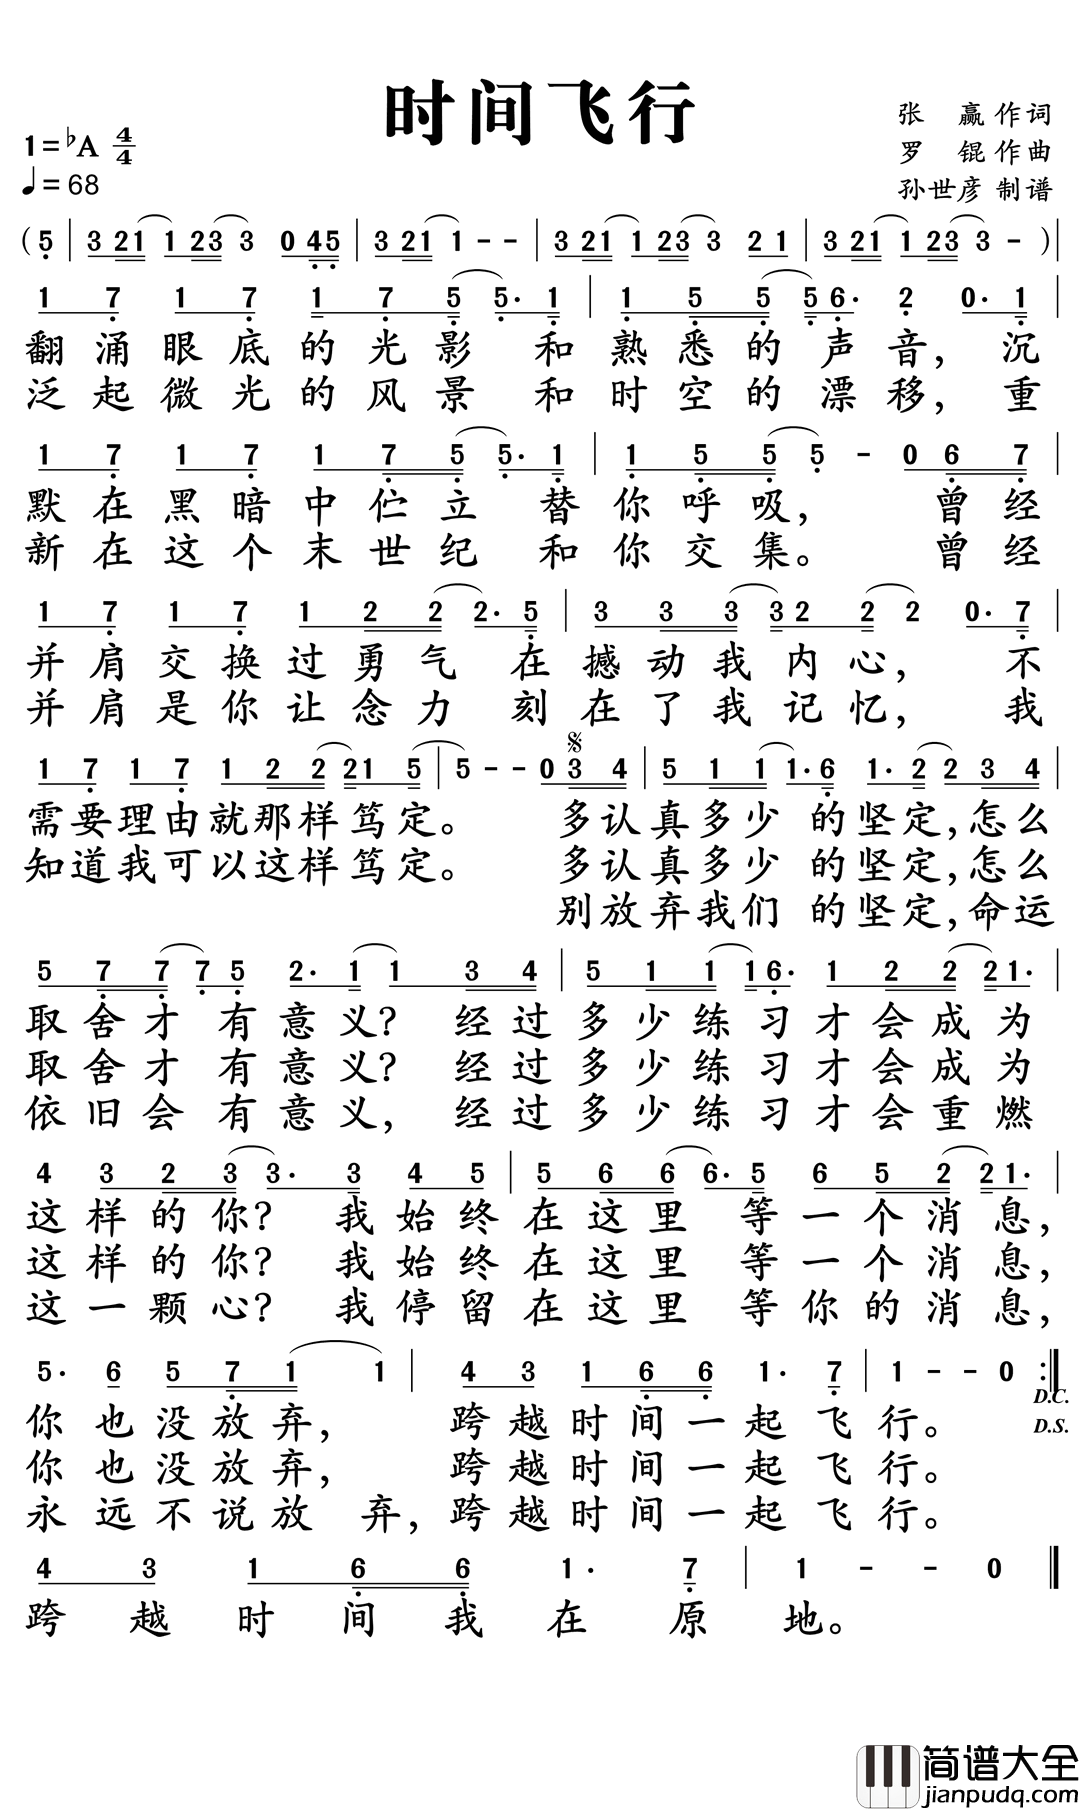 时间飞行
张 赢作词
罗 锟作曲
孙世彦 制谱
1=♭A 4/4
♩=68
(5 | 3 21 1 23 3 0 45 | 3 21 1 - - | 3 21 1 23 3 2 1 | 3 21 1 23 3 - )|
1 7 1 7 1 7 5 5· 1 | 1 5 5 5 6· 2 0· 1 |
翻涌眼底的光影 和熟悉的声音，沉
泛起微光的风景 和时空的漂移，重
1 7 1 7 1 7 5 5· 1 | 1 5 5 5 - 0 6 7 |
默在黑暗中伫立 替你呼吸， 曾经
新在这个末世纪 和你交集。 曾经
1 7 1 7 1 2 2 2· 5 | 3 3 3 3 2 2 2 0· 7 |
并肩交换过勇气 在撼动我内心， 不
并肩是你让念力 刻在了我记忆， 我
1 7 1 7 1 2 2 21 5 | 5 - - 0 3 4 | 5 1 1 1· 6 1· 2 2 3 4 |
需要理由就那样笃定。 多认真多少 的坚定，怎么
知道我可以这样笃定。 多认真多少 的坚定，怎么
别放弃我们 的坚定，命运
5 7 7 7 5 2· 1 1 3 4 | 5 1 1 1 6· 1 2 2 2 1· |
取舍才 有意义？ 经过多少练习才会成为
取舍才 有意义？ 经过多少练习才会成为
依旧会 有意义， 经过多少练习才会重燃
4 3 2 3 3· 3 4 5 | 5 6 6 6· 5 6 5 2 2 1· |
这样的你？ 我始终在这里 等一个消息，
这样的你？ 我始终在这里 等一个消息，
这一颗心？ 我停留在这里 等你的消息，
5· 6 5 7 1 1 | 4 3 1 6 6 1· 7 | 1 - - 0 :|
D.C.
D.S.
你也没放弃， 跨越时间一起飞行。
你也没放弃， 跨越时间一起飞行。
永远不说放 弃，跨越时间一起飞行。
4 3 1 6 6 1· 7 | 1 - - 0 ‖
跨越时间我在原地。
简谱大全
jianpudq.com